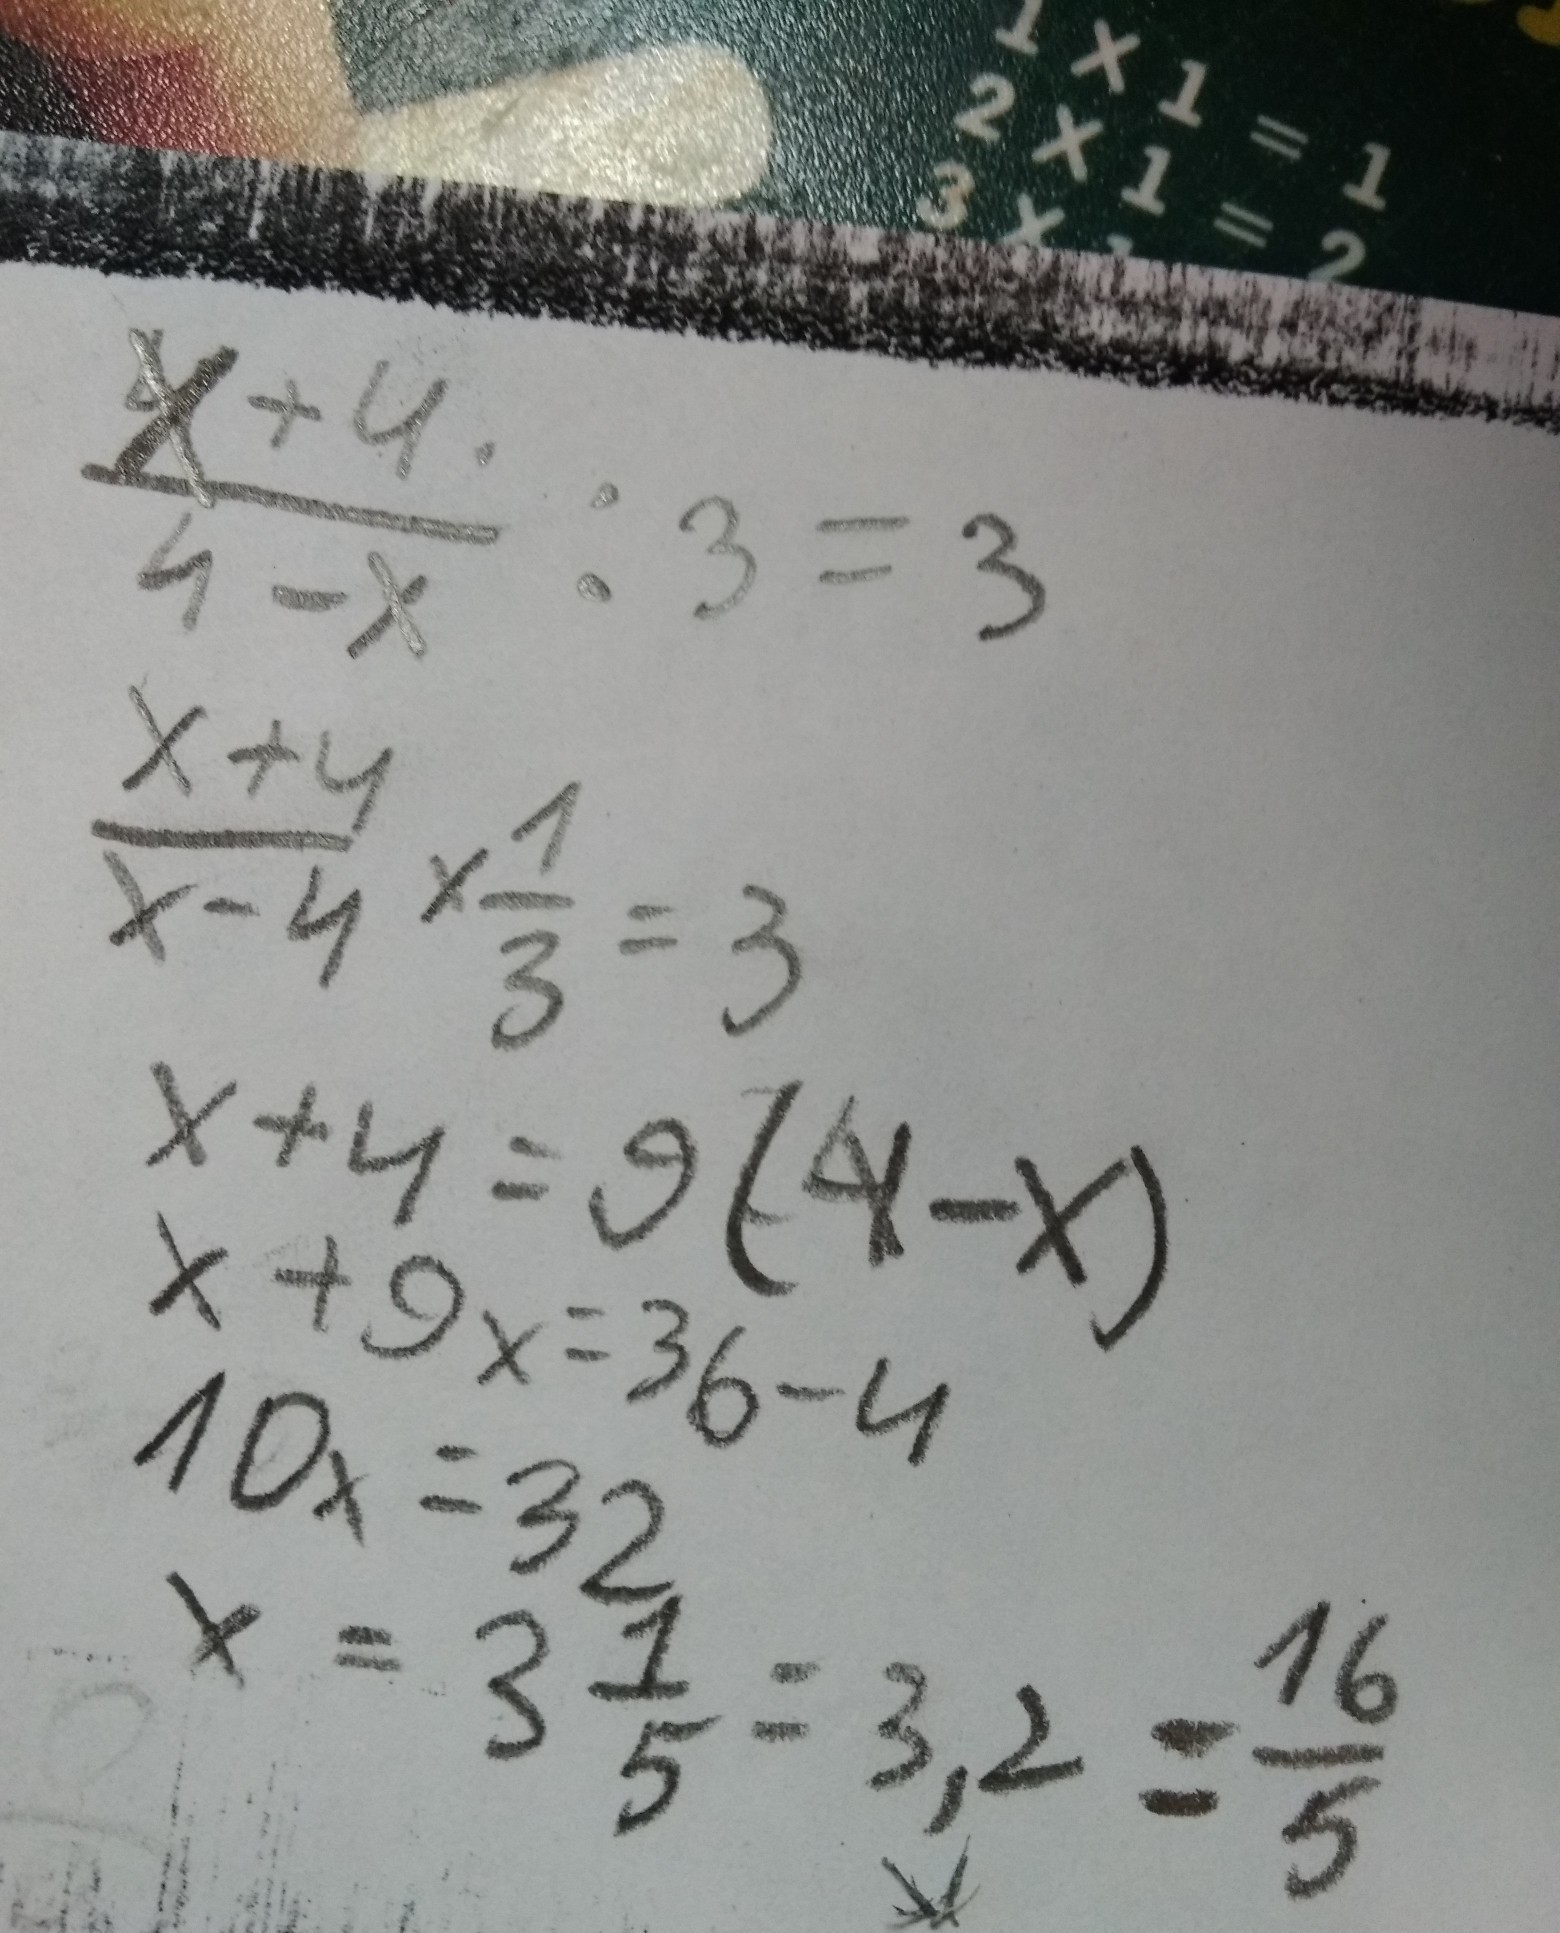 1 x 1 = 1
2 x 1 = 2
3 x
x + 4
4 - x
: 3 = 3
x + 4
x - 4
x
1
3
= 3
x + 4 = 9 (4 - x)
x + 9x = 36 - 4
10x = 32
x = 3 1/5 = 3,2 = 16/5